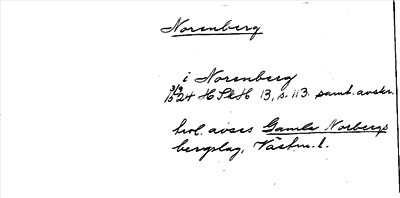 Norenberg
i Norenberg
3/9 1524 HSkH 13, s. 113. samt. avskr.
trol. avses Gamla Norbergs
bergslag, Västm. l.